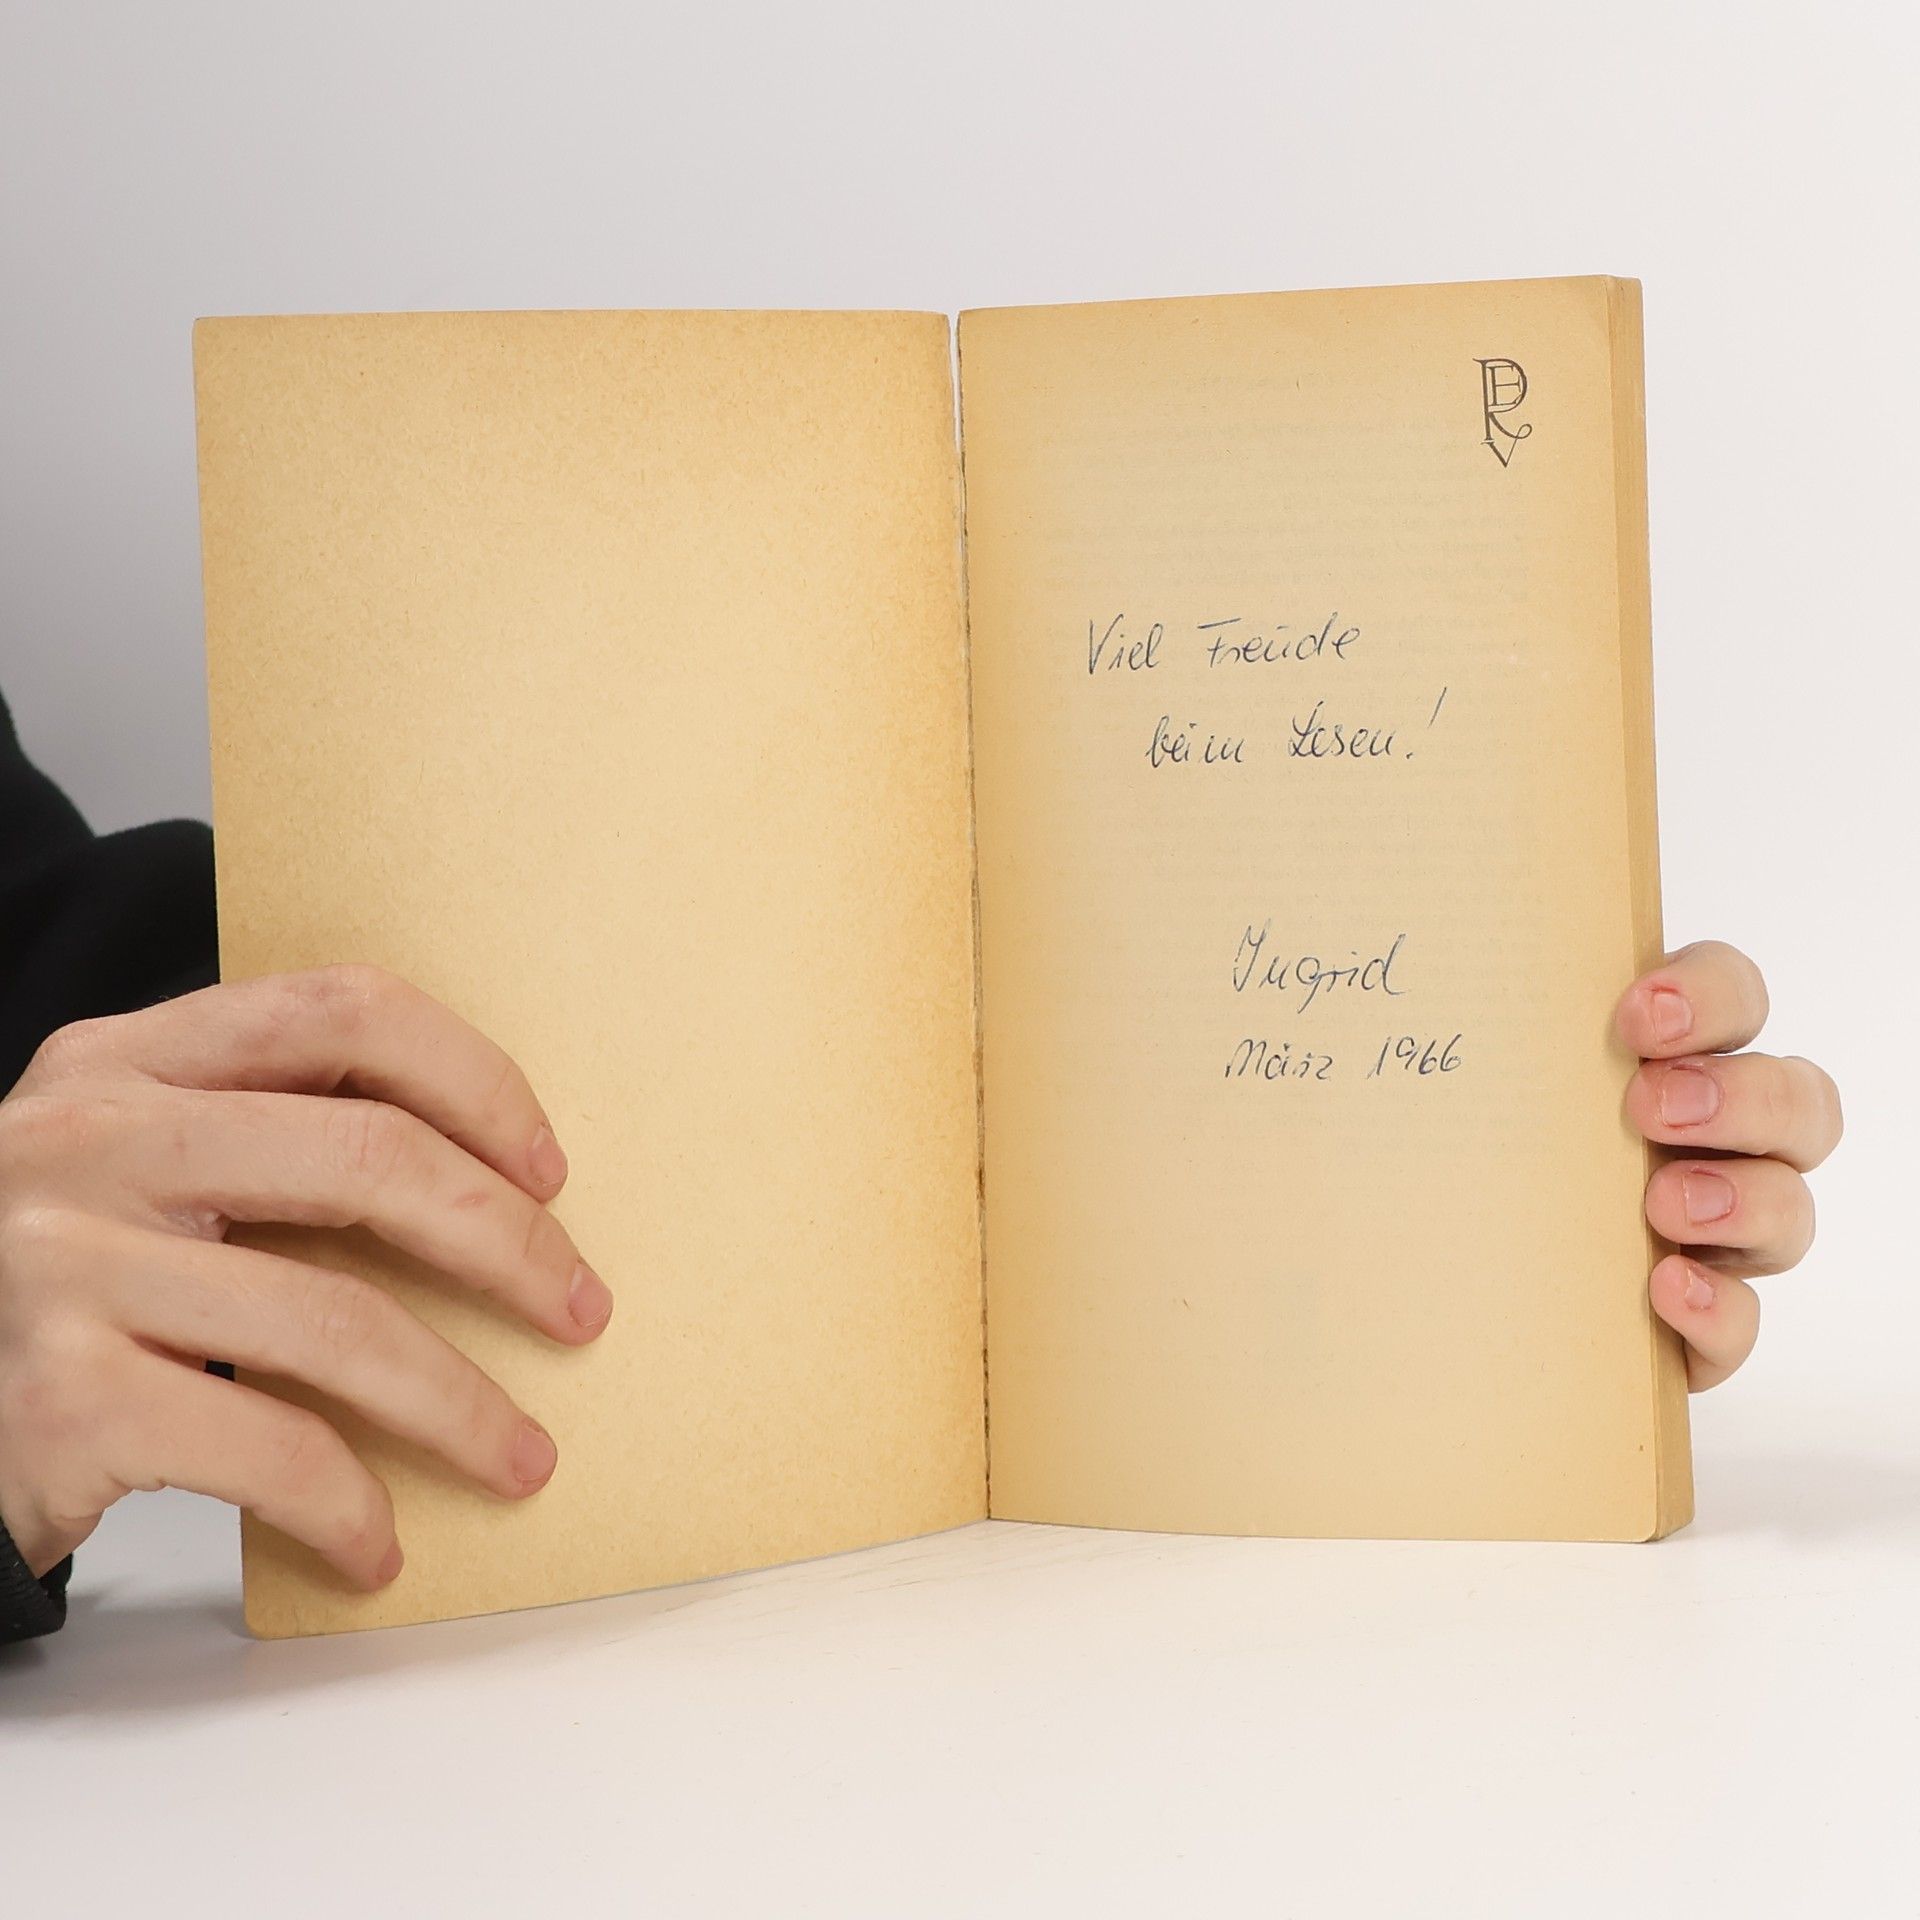 Viel Freude
beim Lesen!
Ingrid
März 1966